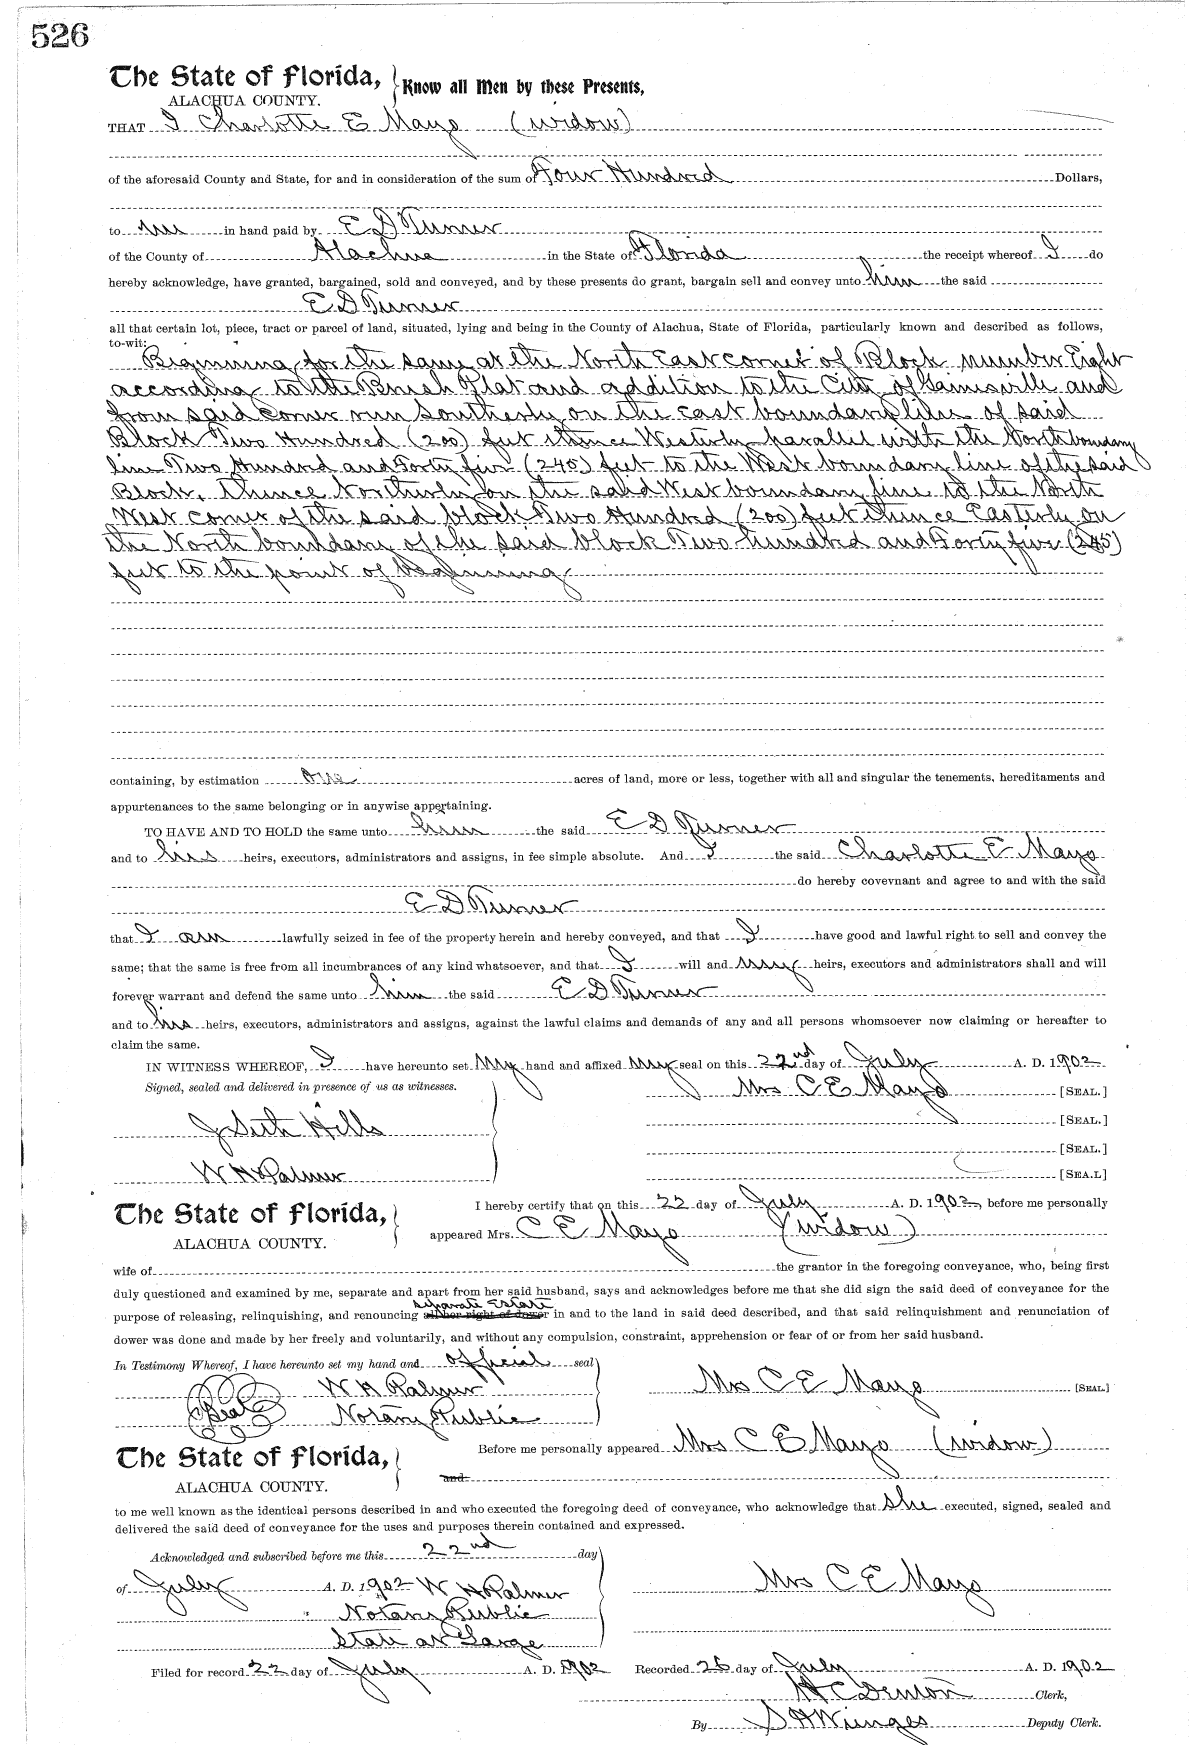 526
The State of Florida, Know all Men by these Presents,
ALACHUA COUNTY.
THAT I Charlotte E Mayo (widow)
of the aforesaid County and State, for and in consideration of the sum of Four Hundred Dollars,
to me in hand paid by E D Turner
of the County of Alachua in the State of Florida the receipt whereof I do
hereby acknowledge, have granted, bargained, sold and conveyed, and by these presents do grant, bargain sell and convey unto him the said
E D Turner
all that certain lot, piece, tract or parcel of land, situated, lying and being in the County of Alachua, State of Florida, particularly known and described as follows,
to-wit:
Beginning for the same at the North East corner of Block number Eight
according to the Brush Plat and addition to the City of Gainisville and
from said corner run Southerly on the East boundary line of said
Block Two Hundred (200) feet thence Westerly parallel with the North boundary
line Two Hundred and Forty five (245) feet to the West boundary line of the said
Block, thence Northerly on the said West boundary line to the North
West corner of the said block Two Hundred (200) feet thence Easterly on
the North boundary of the said block Two hundred and Forty five (245)
feet to the point of Beginning
containing, by estimation one acres of land, more or less, together with all and singular the tenements, hereditaments and
appurtenances to the same belonging or in anywise appertaining.
TO HAVE AND TO HOLD the same unto him the said E D Turner
and to his heirs, executors, administrators and assigns, in fee simple absolute. And I the said Charlotte E Mayo
do hereby covevnant and agree to and with the said
E D Turner
that I am lawfully seized in fee of the property herein and hereby conveyed, and that I have good and lawful right to sell and convey the
same; that the same is free from all incumbrances of any kind whatsoever, and that I will and my heirs, executors and administrators shall and will
forever warrant and defend the same unto him the said E D Turner
and to his heirs, executors, administrators and assigns, against the lawful claims and demands of any and all persons whomsoever now claiming or hereafter to
claim the same.
IN WITNESS WHEREOF, I have hereunto set My hand and affixed my seal on this 22nd day of July A. D. 1902
Signed, sealed and delivered in presence of us as witnesses. Mrs C E Mayo [SEAL.]
[SEAL.]
J Seth Hills
[SEAL.]
W H Palmer [SEA.L]
The State of Florida, I hereby certify that on this 22 day of July A. D. 1902, before me personally
ALACHUA COUNTY. appeared Mrs. C E Mayo (widow)
wife of the grantor in the foregoing conveyance, who, being first
duly questioned and examined by me, separate and apart from her said husband, says and acknowledges before me that she did sign the said deed of conveyance for the
separate Estate
purpose of releasing, relinquishing, and renouncing all her right of dower in and to the land in said deed described, and that said relinquishment and renunciation of
dower was done and made by her freely and voluntarily, and without any compulsion, constraint, apprehension or fear of or from her said husband.
In Testimony Whereof, I have hereunto set my hand and official seal
W H Palmer Mrs C E Mayo [SEAL]
Seal Notary Public
The State of Florida, Before me personally appeared Mrs C E Mayo (widow)
and
ALACHUA COUNTY.
to me well known as the identical persons described in and who executed the foregoing deed of conveyance, who acknowledge that she executed, signed, sealed and
delivered the said deed of conveyance for the uses and purposes therein contained and expressed.
Acknowledged and subscribed before me this 22nd day
of July A. D. 1902 W H Palmer Mrs C E Mayo
Notary Public
State at Large
Filed for record 22 day of July A. D. 1902 Recorded 26 day of July A. D. 1902
H C Denton Clerk,
By S H Wienges Deputy Clerk.